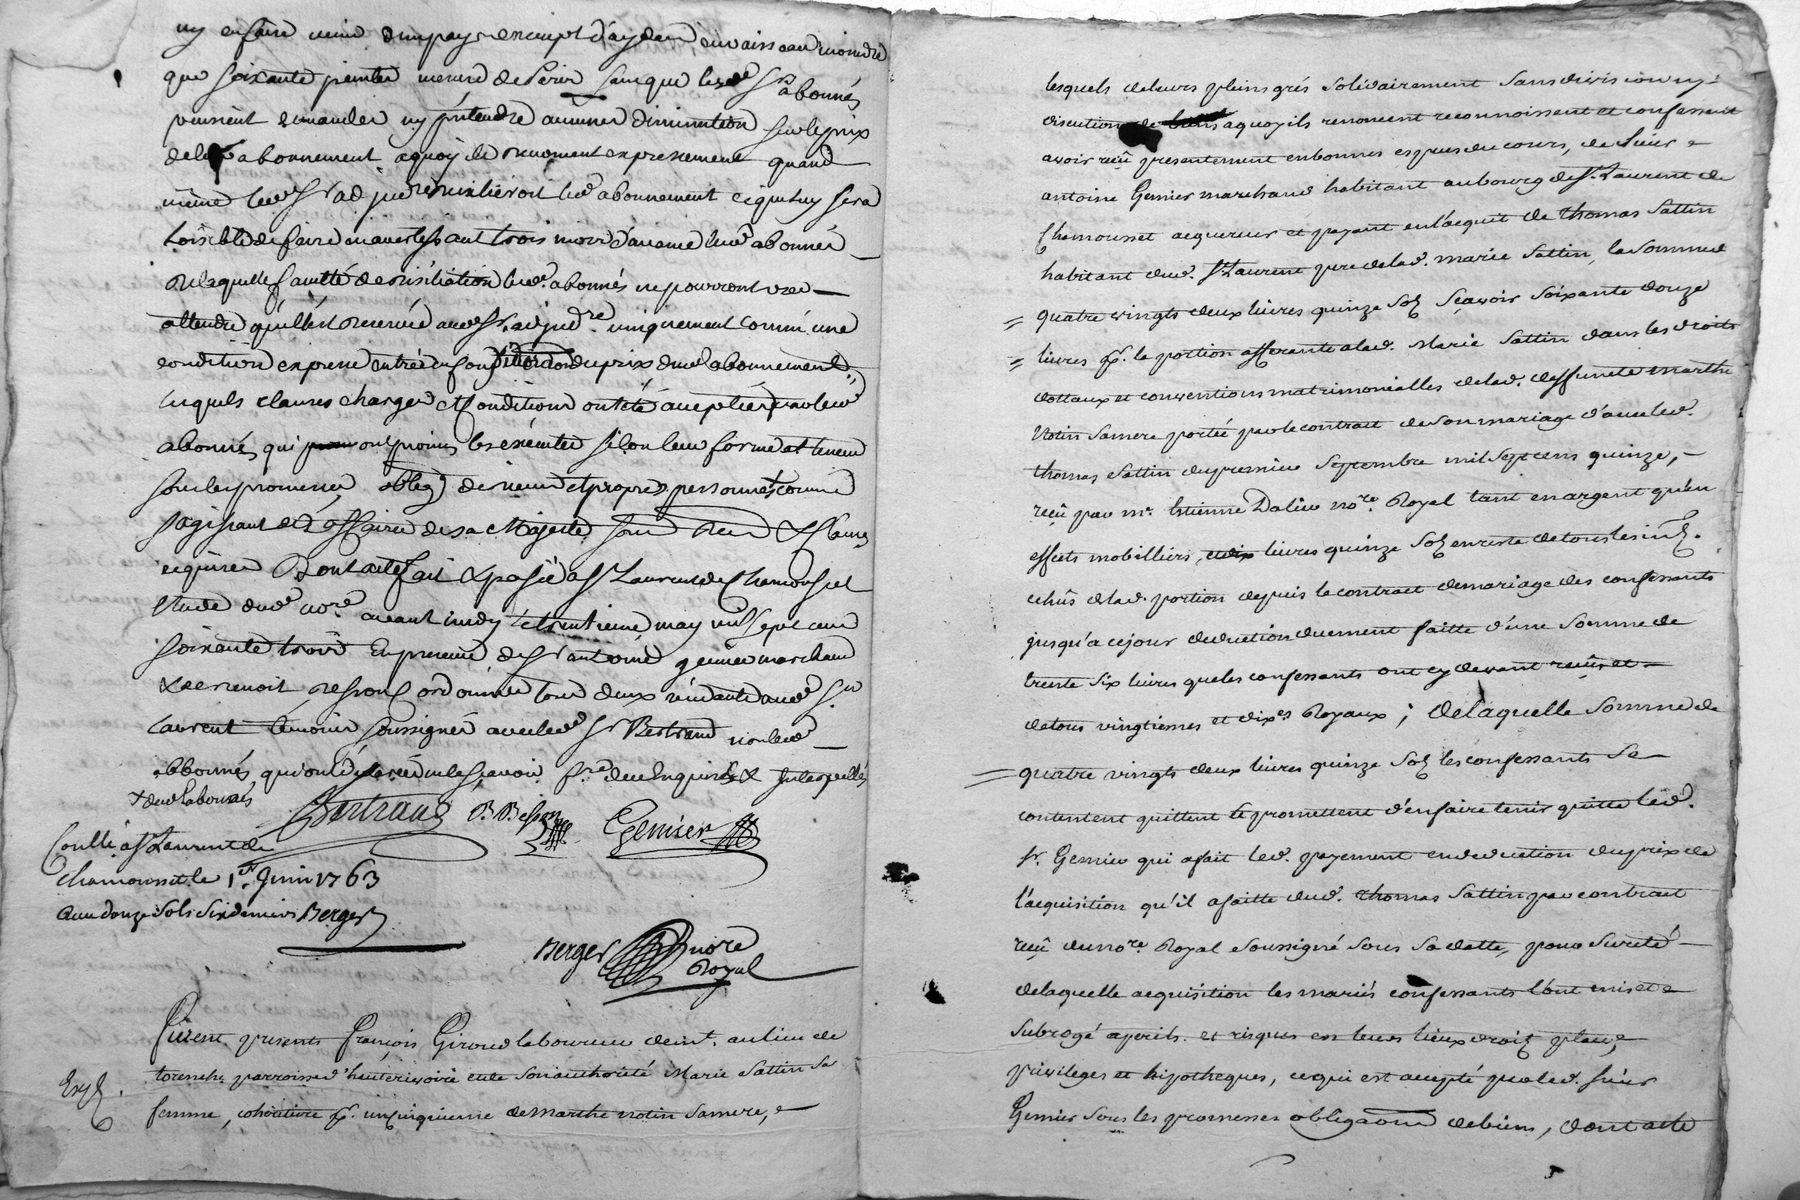 que soixante pintes mesure de Paris sans que lesd. Srs abonnés
puissent demander ny prétendre aucune diminution sur le prix
abonnement a quoy ils renoncent expressement quand
même led. Sr adjudre résilieroit led. abonnement ce qui luy sera
loisible de faire en avertissant trois mois d'avance lesd. abonnés
de laquelle faculté de résiliation lesd. abonnés ne pourront user
attendu qu'elle est reservée aud. Sr. adjudre. uniquement comme une
condition expresse entrée en considération du prix dud. abonnement
lesquels clauses charges et conditions ont été acceptées par lesd.
abonnés, qui ont promis les exécuter selon leur forme et teneur
sous les promesses, obligons de biens et propres personnes comme
s'agissant des affaires de sa Majesté soum. Ren. & Clauses
requises Dont acte fait & passé a St Laurent de Chamousset
étude dud. nore. avant midy le trentieme may mil sept cent
soixante trois En presence de Sr antoine genier marchand
laurent témoins soussignés avec led. Sr Bertrand non lesd.
abbonnés, qui ont déclaré ne le sçavoir, fre. de ce Enquis & Interpellés
+ dud. abonnés
Bertrand B. Besson Genier
Conllé a St Laurent de
chamousset le 1er Juin 1763
douze sols six deniers Berger
Berger nore
Royal
Furent presents François Giroud laboureur demt. au lieu de
paroisse d'hauterivoire et de son authorité Marie Sattin sa
Exp.
femme, cohéritiere pr. un cinquieme de marthe notin sa mere,
lesquels de leurs pleins grés solidairement sans division ny
discution de biens a quoy ils renoncent reconnoissent et confessent
avoir reçû presentement en bonnes especes du cours, de sieur
antoine Genier marchand habitant au bourg de St. Laurent de
Chamousset acquereur et payant en l'acquit de thomas Sattin
habitant dud. St Laurent pere de lad. marie Sattin, la somme de
= quatre vingts deux livres quinze sols sçavoir soixante douze
= livres pr. la portion afferante a lad. Marie Sattin dans les droits
dottaux et conventions matrimonialles de lad. deffuncte marthe
Notin sa mere portée par le contract de son mariage d'avec led.
thomas Sattin du premier Septembre mil sept cens quinze,
reçû par me. Etienne Dalieu nore. Royal tant en argent qu'en
effects mobilliers, et dix livres quinze sols en reste de tous les int.
echûs de lad. portion depuis le contract de mariage des confessants
jusqu'a ce jour deduction duement faitte d'une somme de
trente six livres que les confessants ont cy devant reçûs et
de tous vingtiemes et dixes. Royaux ; de laquelle somme de
= quatre vingts deux livres quinze sols les confessants se
contentent quittent et promettent d'en faire tenir quitte led.
sr. Genier qui a fait led. payement en deduction du prix de
l'acquisition qu'il a faitte dud. thomas Sattin par contract
reçû du nore. Royal soussigné sous sa datte, pour sureté
de laquelle acquisition les mariés confessants l'ont mis et
subrogé a perils et risques en leurs lieux droits place,
privileges et hipotheques, ce qui est accepté par led. sieur
Genier sous les promesses obligaons de biens, dont acte